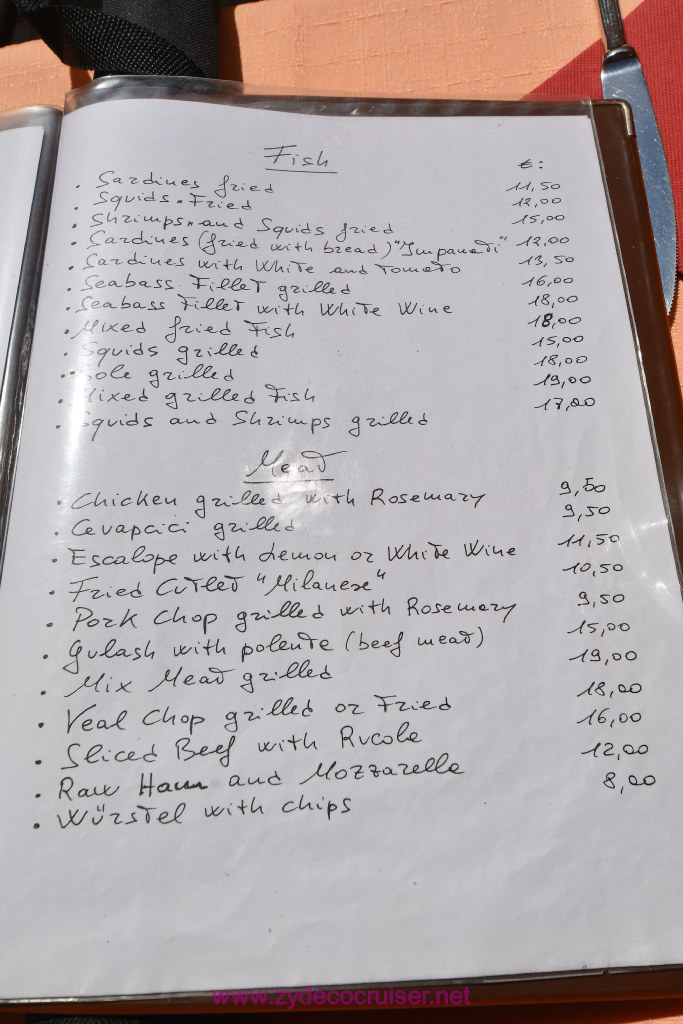 Fish €:
. Sardines fried 11,50
. Squids Fried 12,00
. Shrimps and Squids fried 15,00
. Sardines (fried with bread) "Impanati" 12,00
. Sardines with White and Tomato 13,50
. Seabass Fillet grilled 16,00
. Seabass Fillet with White Wine 18,00
. Mixed fried Fish 18,00
. Squids grilled 15,00
. Sole grilled 18,00
. Mixed grilled Fish 19,00
. Squids and Shrimps grilled 17,00
Mead
. Chicken grilled with Rosemary 9,50
. Cevapcici grilled 9,50
. Escalope with Lemon or White Wine 11,50
. Fried Cutlet "Milanese" 10,50
. Pork Chop grilled with Rosemary 9,50
. Gulash with polente (beef mead) 15,00
. Mix Mead grilled 19,00
. Veal Chop grilled or Fried 18,00
. Sliced Beef with Rucola 16,00
. Raw Ham and Mozzarella 12,00
. Würstel with chips 8,00
www.zydecocruiser.net